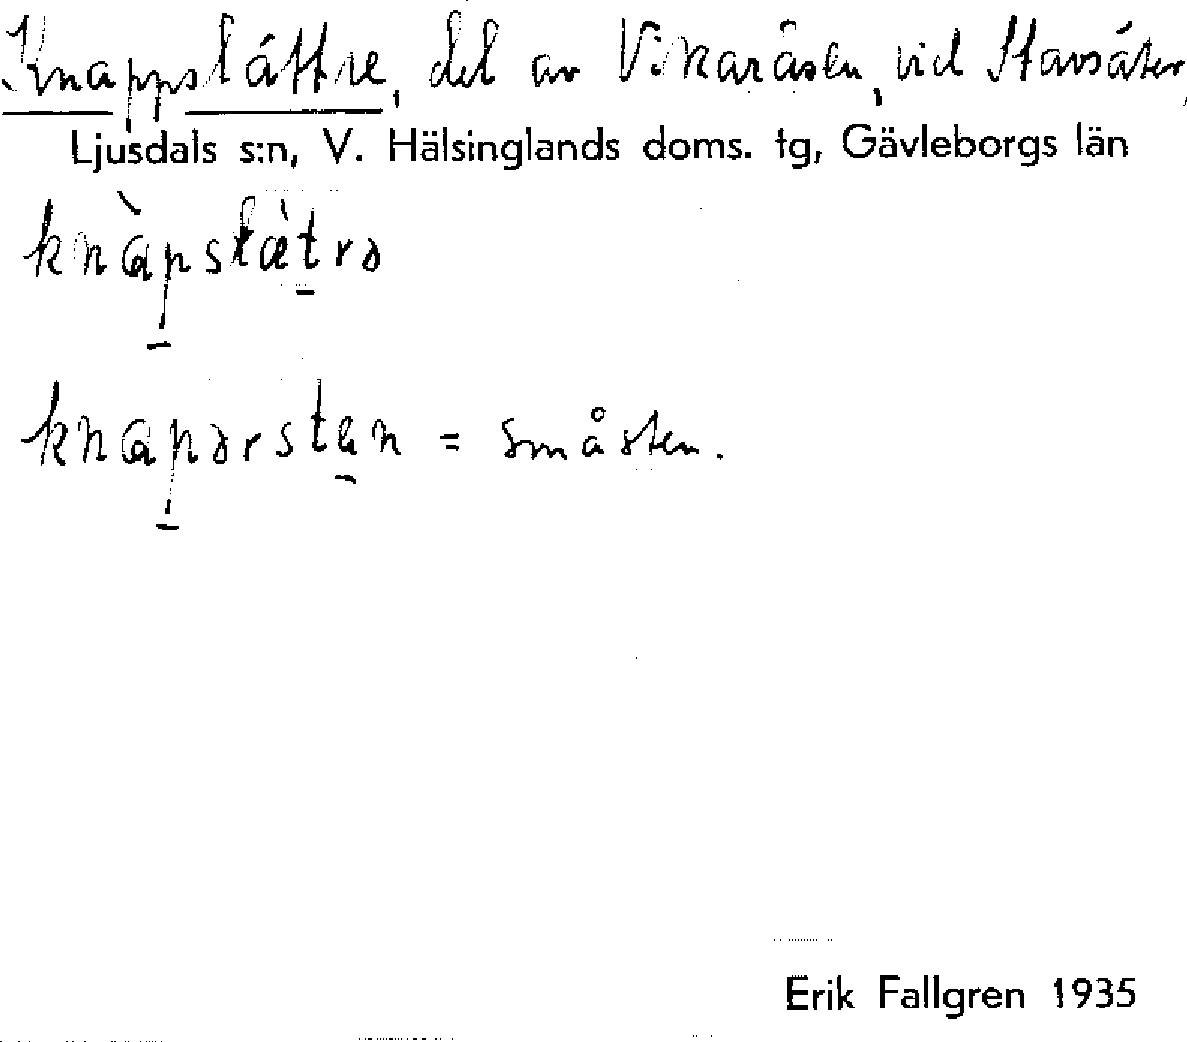 Knappslåttre, del av Vikaråsen, vid Stavsäter,
Ljusdals s:n, V. Hälsinglands doms. tg, Gävleborgs län
= småsten.
Erik Fallgren 1935